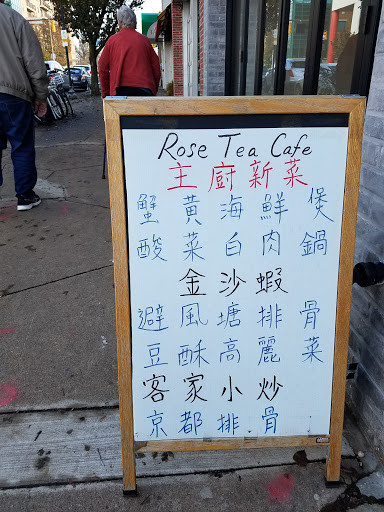 Rose Tea Cafe
主廚新菜
蟹黃海鮮煲
酸菜白肉鍋
金沙蝦
避風塘排骨
豆酥高麗菜
客家小炒
京都排骨